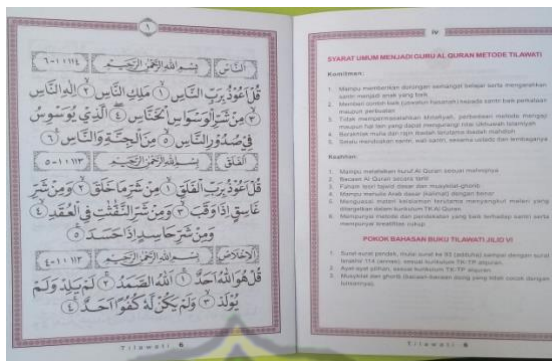 ١
٦-١ : ١١٤
النَّاسِ
بِسْمِ اللهِ الرَّحْمٰنِ الرَّحِيْمِ
قُلْ اَعُوْذُ بِرَبِّ النَّاسِ ١ مَلِكِ النَّاسِ ٢ اِلٰهِ النَّاسِ
٣ مِنْ شَرِّ الْوَسْوَاسِ الْخَنَّاسِ ٤ الَّذِيْ يُوَسْوِسُ
فِيْ صُدُوْرِ النَّاسِ ٥ مِنَ الْجِنَّةِ وَالنَّاسِ ٦
الْفَلَقِ بِسْمِ اللهِ الرَّحْمٰنِ الرَّحِيْمِ ٥-١ : ١١٣
قُلْ اَعُوْذُ بِرَبِّ الْفَلَقِ ١ مِنْ شَرِّ مَا خَلَقَ ٢ وَمِنْ شَرِّ
غَاسِقٍ اِذَا وَقَبَ ٣ وَمِنْ شَرِّ النَّفّٰثٰتِ فِى الْعُقَدِ ٤
وَمِنْ شَرِّ حَاسِدٍ اِذَا حَسَدَ ٥
الْاِخْلَاصِ بِسْمِ اللهِ الرَّحْمٰنِ الرَّحِيْمِ
قُلْ هُوَ اللهُ اَحَدٌ ١ اَللهُ الصَّمَدُ ٢ لَمْ يَلِدْ وَلَمْ
يُوْلَدْ ٣ وَلَمْ يَكُنْ لَّهُ كُفُوًا اَحَدٌ ٤
Tilawati 6
iv
SYARAT UMUM MENJADI GURU AL QURAN METODE TILAWATI
Komitmen:
1. Mampu memberikan dorongan semangat belajar serta mengarahkan
santri menjadi anak yang baik
2. Memberi contoh baik (uswatun hasanah) kepada santri baik perkataan
maupun perbuatan
3. Tidak mempermasalahkan khilafiyah, perbedaan metode mengaji
maupun hal lain yang dapat mengurangi nilai Ukhuwah Islamiyah
4. Berakhlak mulia dan rajin ibadah terutama ibadah mahdoh
5. Selalu mendoakan santri, wali santri, sesama ustadz dan lembaganya
Keahlian:
1. Mampu melafalkan huruf Al Quran sesuai makhrojnya
2. Bacaan Al Quran secara tartil
3. Faham teori tajwid dasar dan musykilat ghorib
4. Mampu menulis Arab dasar (kalimat) dengan benar
5. Menguasai materi keislaman terutama menyangkut materi yang
ditargetkan dalam kurikulum TK Al Quran
6. Mempunyai metode dan pendekatan yang baik terhadap santri serta
mempunyai kreatifitas cukup
POKOK BAHASAN BUKU TILAWATI JILID VI
1. Surat-surat pendek, mulai surat ke 93 (addluha) sampai dengan surat
terakhir 114 (annas), sesuai kurikulum TK-TP alquran.
2. Ayat-ayat pilihan, sesuai kurikulum TK-TP alquran.
3. Musykilat dan ghorib (bacaan-bacaan asing yang tidak cocok dengan
tulisannya).
Tilawati 6